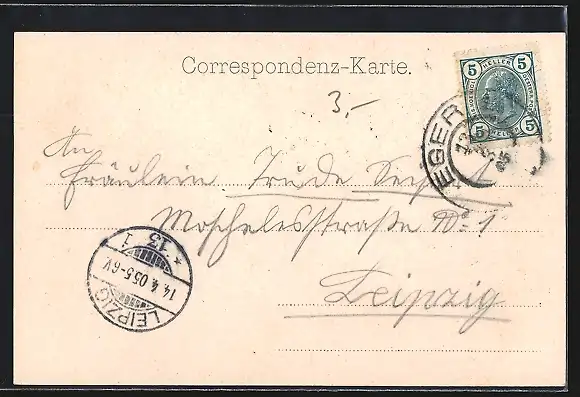 Correspondenz-Karte.
3,-
5 HELLER 5
5 HELLER 5
EGER
An
Fräulein Trude
Moschelesstraße No 1
Leipzig
LEIPZIG
* 13
1
14.4.05.5-6V.